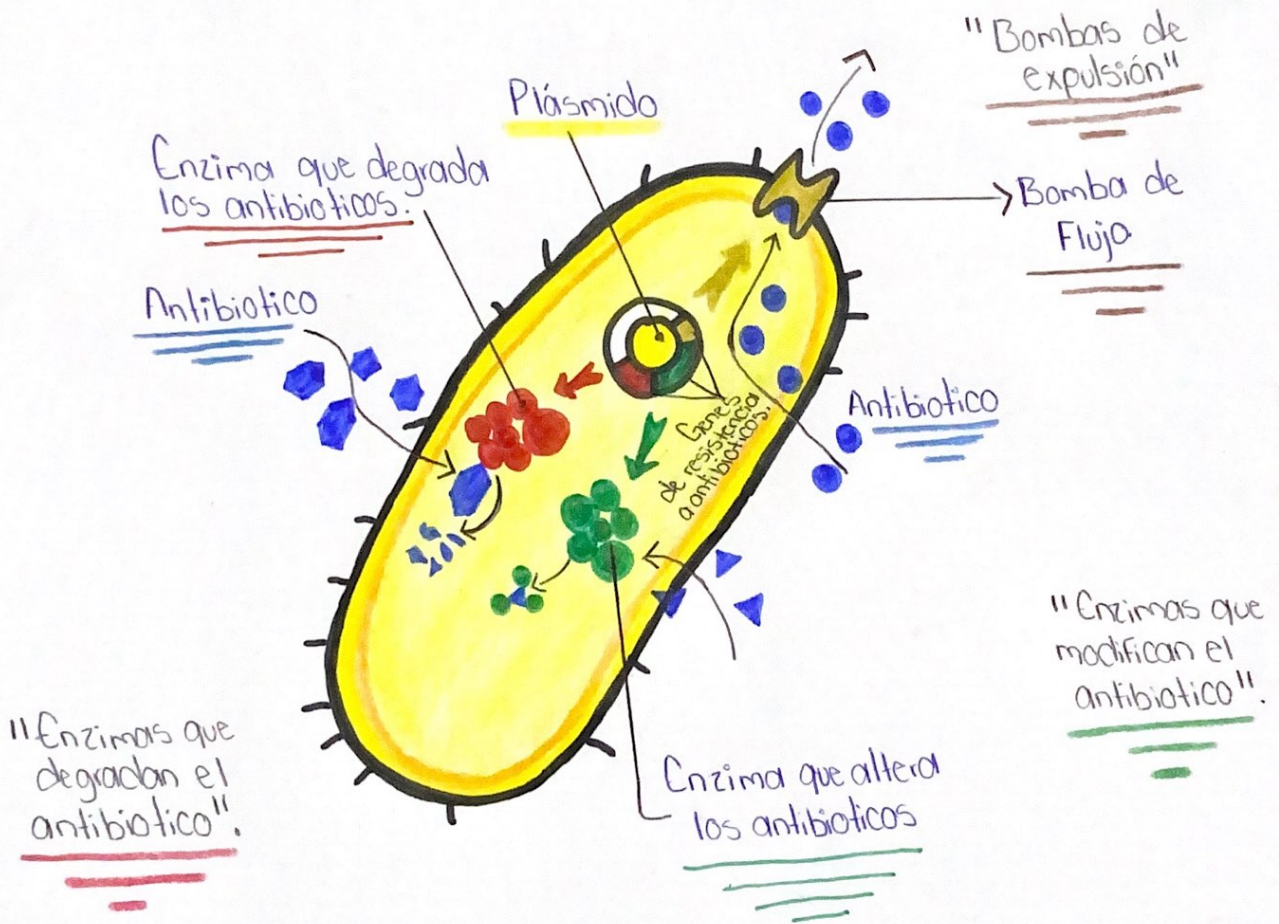 "Bombas de
expulsión"
Plásmido
Enzima que degrada
los antibioticos.
Bomba de
Flujo
Antibiotico
Antibiotico
Genes
de resistencia
a antibioticos.
"Enzimas que
modifican el
antibiotico".
"Enzimas que
degradan el
antibiotico".
Enzima que altera
los antibioticos